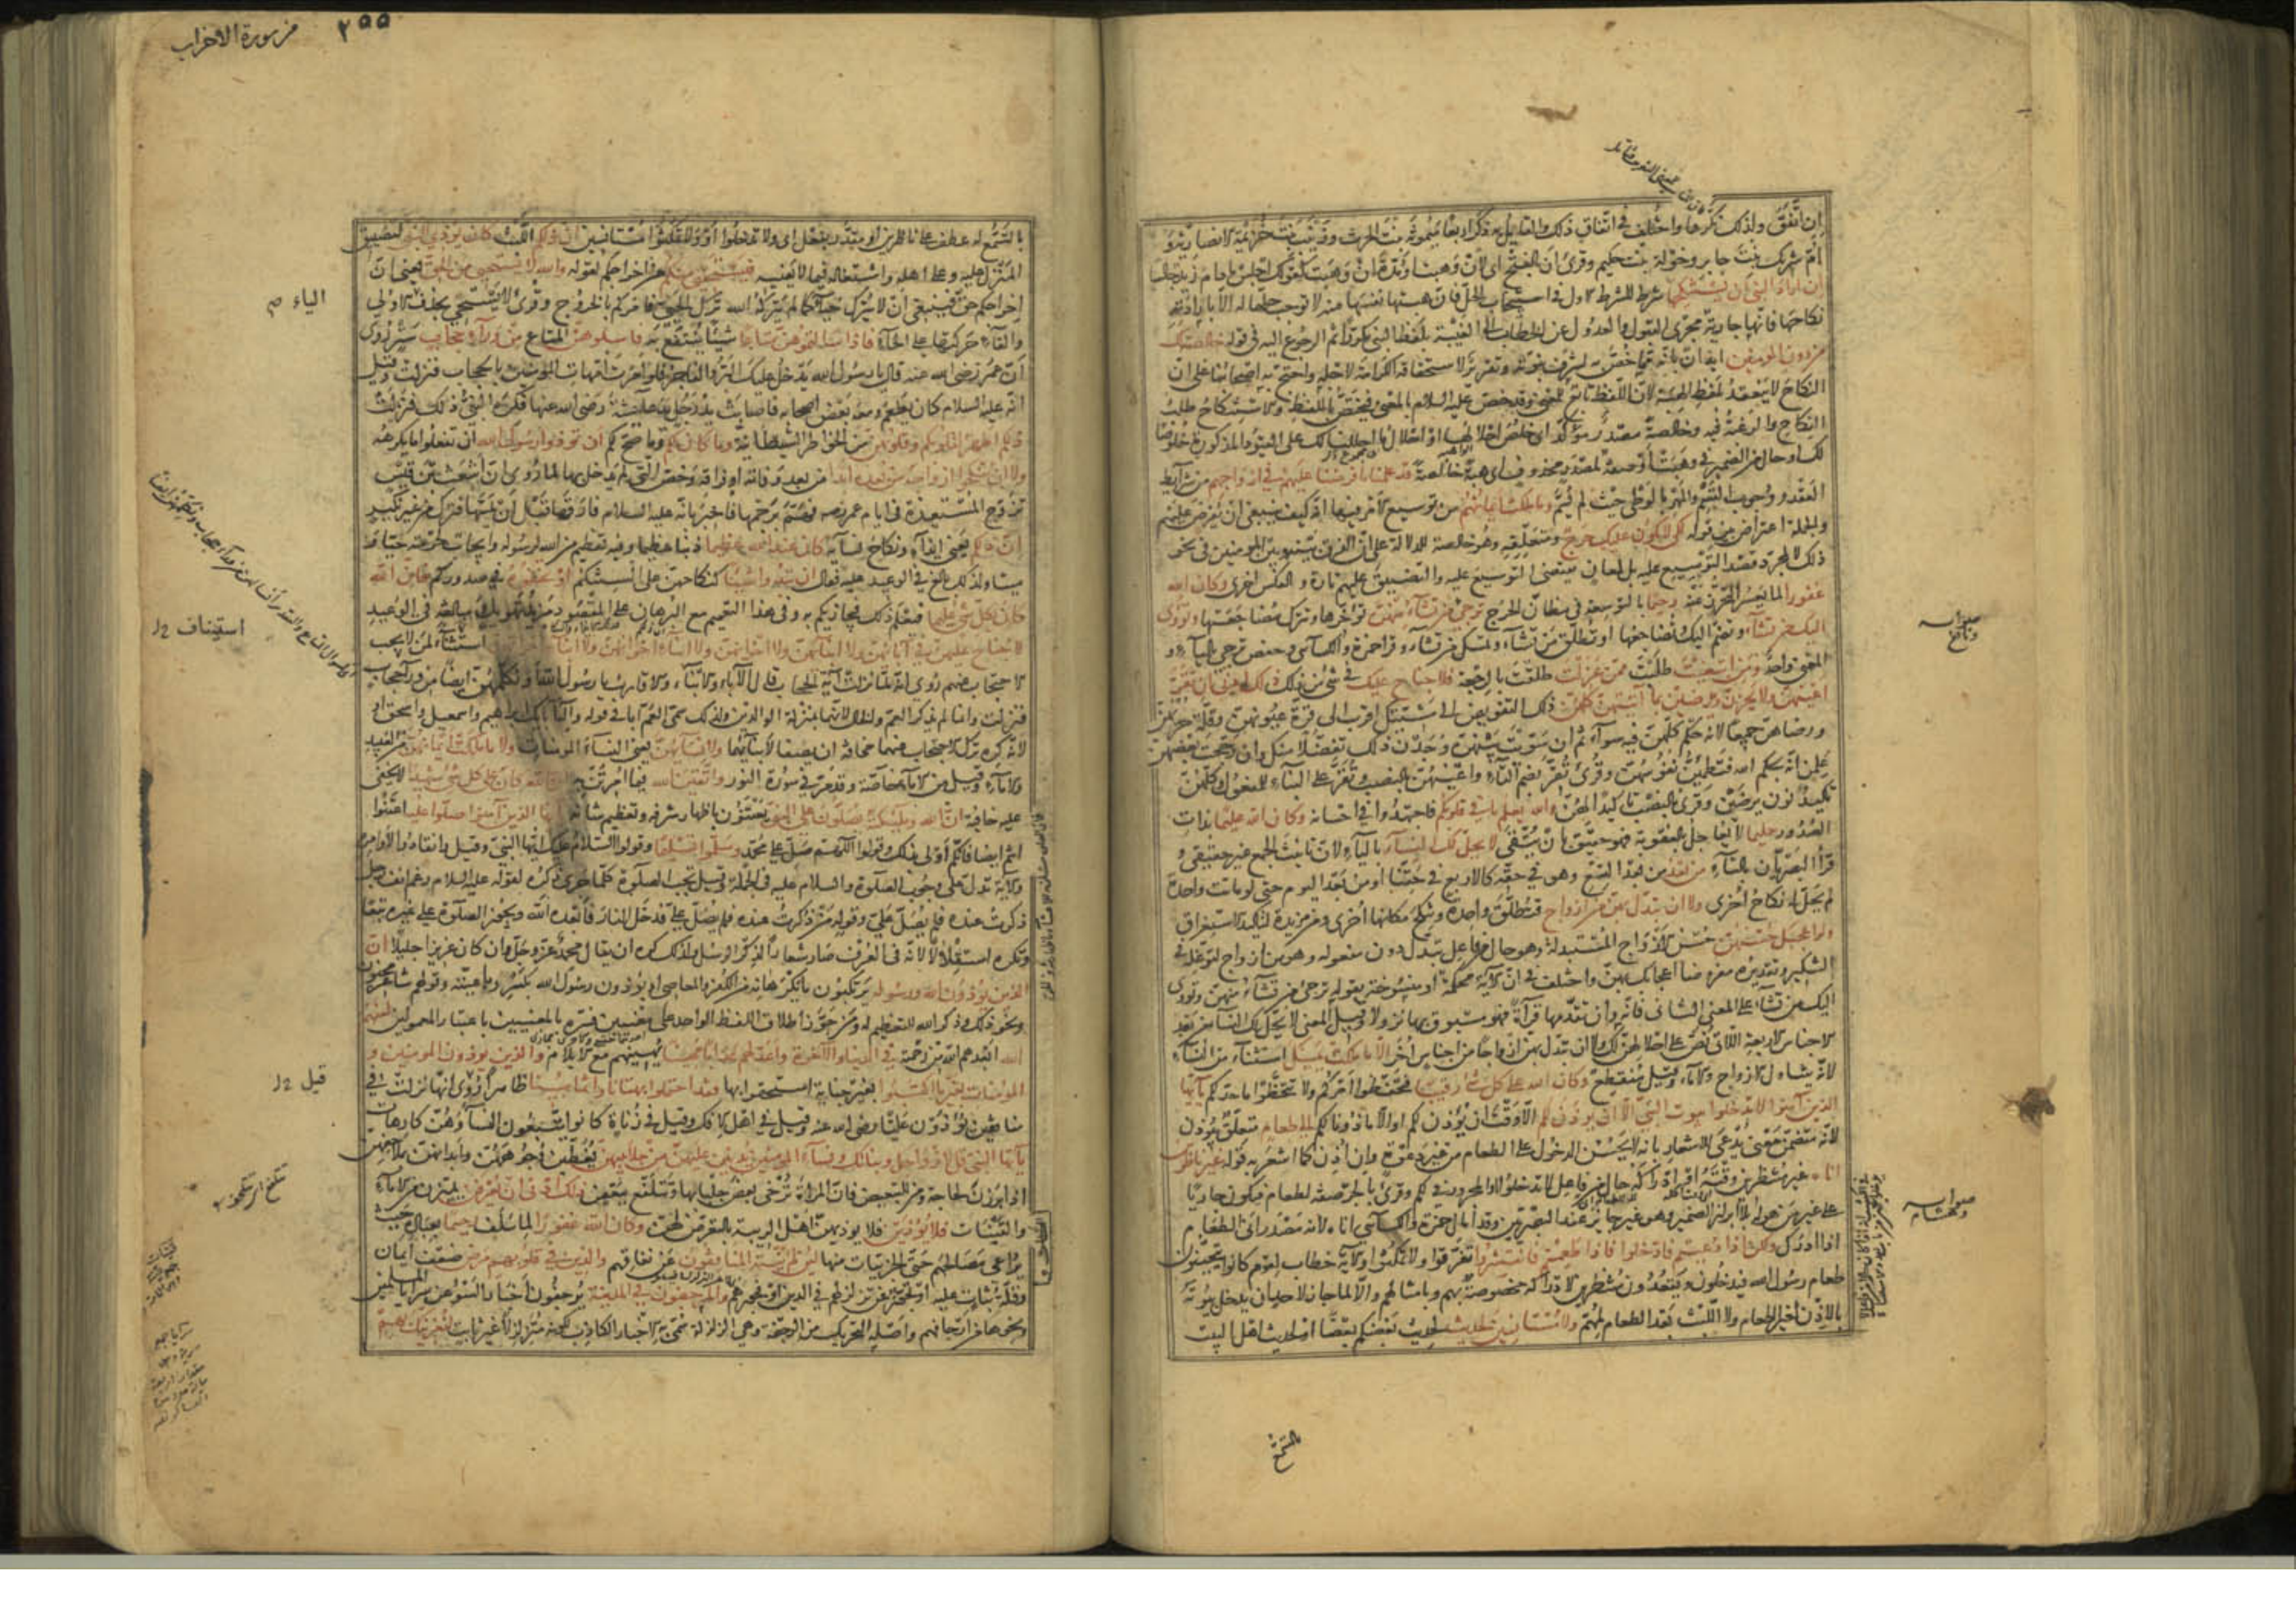 إن اتفق ولذلك نكرها واختلف في اتفاق ذلك والقائل به ذكر أربعا ميمونة بنت الحرث وزينب بنت خزيمة الانصارية و
أم شريك بنت جابر وخولة بنت حكيم وقرئ أن بالفتح أي لان وهبت أو مدة أن وهبت كقولك اجلس ما دام زيد جالسا
إن أراد النبي أن يستنكحها شرط للشرط الاول في استيجاب الحل فان هبتها نفسها منه لا توجب حلها له الا بارادته
نكاحها فانها جارية مجرى القبول والعدول عن الخطاب الى الغيبة بلفظ النبي مكررا ثم الرجوع اليه في قوله خالصة لك
من دون المؤمنين ايذان بأنه مما خص به لشرف نبوته وتقرير لاستحقاقه الكرامة لاجله واحتج به اصحابنا على ان
النكاح لا ينعقد بلفظ الهبة لان اللفظ تابع للمعنى وقد خص عليه السلام بالمعنى فيختص باللفظ والاستنكاح طلب
النكاح والرغبة فيه وخالصة مصدر مؤكد اي خلص احلالها او احلال ما احللنا لك على القيود المذكورة خلوصا
لك او حال من الضمير في وهبت أو صفة لمصدر محذوف اي هبة خالصة قد علمنا ما فرضنا عليهم في ازواجهم من شرائط
العقد ووجوب القسم والمهر بالوطئ حيث لم يسم وما ملكت ايمانهم من توسيع الامر فيها انه كيف ينبغي ان يفرض عليهم
والجملة اعتراض بين قوله لكيلا يكون عليك حرج ومتعلقه وهو خالصة للدلالة على ان الفرق بينه وبين المؤمنين في نحو
ذلك لا لمجرد قصد التوسيع عليه بل لمعان تقتضي التوسيع عليه والتضييق عليهم تارة والعكس اخرى وكان الله
غفورا لما يعسر التحرز عنه رحيما بالتوسعة في مظان الحرج ترجي من تشاء منهن تؤخرها وتترك مضاجعتها وتؤوي
اليك من تشاء وتضم اليك وتضاجعها او تطلق من تشاء وتمسك من تشاء وقرأ حمزة والكسائي وحفص ترجي بالياء و
المعنى واحد ومن ابتغيت طلبت ممن عزلت طلقت بالرجعة فلا جناح عليك في شئ من ذلك ذلك ادنى ان تقر
اعينهن ولا يحزن ويرضين بما آتيتهن كلهن ذلك التفويض الى مشيئتك اقرب الى قرة عيونهن وقلة حزنهن
ورضاهن جميعا لانه حكم كلهن فيه سواء ثم ان سويت بينهن وجدن ذلك تفضلا منك وان رجحت بعضهن
علمن انه بحكم الله فتطمئن نفوسهن وقرئ تقر بضم التاء واعينهن بالنصب وتقر على البناء للمفعول وكلهن
تاكيد نون يرضين وقرئ بالنصب تاكيدا لهن والله يعلم ما في قلوبكم فاجتهدوا في احسانه وكان الله عليما بذات
الصدور حليما لا يعاجل بالعقوبة فهو حقيق بان يتقى لا يحل لك النساء بالياء لان تانيث الجمع غير حقيقي و
قرأ البصريان بالتاء من بعد من بعد التسع وهو في حقه كالاربع في حقنا او من بعد اليوم حتى لو ماتت واحدة
لم يحل له نكاح اخرى ولا ان تبدل بهن من ازواج فتطلق واحدة وتنكح مكانها اخرى ومن مزيدة لتاكيد الاستغراق
ولو اعجبك حسنهن حسن الازواج المستبدلة وهو حال من فاعل تبدل دون مفعوله وهو من ازواج لتوغله في
التنكير وتقديره مفروضا اعجابك بهن واختلف في ان الآية محكمة او منسوخة بقوله ترجي من تشاء منهن وتؤوي
اليك من تشاء على المعنى الثاني فانه وان تقدمها قراءة فهو مسبوق بها نزولا وقيل المعنى لا يحل لك النساء من بعد
الاجناس الاربعة اللاتي نص على احلالهن لك ولا ان تبدل بهن ازواجا من اجناس أخر الا ما ملكت يمينك استثناء من النساء
لانه يتناول الازواج والاماء وقيل منقطع وكان الله على كل شئ رقيبا فتحفظوا امركم ولا تتخطوا ما حد لكم يا ايها
الذين آمنوا لا تدخلوا بيوت النبي الا ان يؤذن لكم الا وقت ان يؤذن لكم او الا ماذونا لكم الى طعام متعلق بيؤذن
لانه متضمن معنى يدعى للاشعار بانه لا يحسن الدخول على الطعام من غير دعوة وان اذن كما اشعر به قوله غير ناظرين
اناه غير منتظرين وقته او ادراكه حال من فاعل لا تدخلوا او المجرور في لكم وقرئ بالجر صفة لطعام فيكون جاريا
على غير من هو له بلا ابراز الضمير وهو غير جائز عند البصريين وقد أمال حمزة والكسائي اناه لانه مصدر انى الطعام
اذا ادرك ولكن اذا دعيتم فادخلوا فاذا طعمتم فانتشروا تفرقوا ولا تمكثوا والآية خطاب لقوم كانوا يتحينون
طعام رسول الله فيدخلون ويقعدون منتظرين لادراكه مخصوصة بهم وبامثالهم والا لما جاز لاحد ان يدخل بيوته
بالاذن لغير الطعام ولا اللبث بعد الطعام لمهم ولا مستانسين لحديث لحديث بعضكم بعضا او لحديث اهل البيت
بالتسمع
صوابه
ونافع
صوابه
وهشام
٢٥٥
من سورة الاحزاب
بالتسمع له عطف على ناظرين او مقدر بفعل اي ولا تدخلوا أو ولا تمكثوا مستانسين ان ذلكم اللبث كان يؤذي النبي لتضييق
المنزل عليه وعلى اهله واشتغاله فيما لا يعنيه فيستحيي منكم من اخراجكم لقوله والله لا يستحيي من الحق يعني ان
اخراجكم حق فينبغي ان لا يترك حياء كما لم يتركه الله ترك الحيي فامركم بالخروج وقرئ لا يستحي بحذف الاولى
والقاء حركتها على الحاء فاذا سالتموهن متاعا شيئا ينتفع به فاسئلوهن المتاع من وراء حجاب ستر روي
أن عمر رضي الله عنه قال يا رسول الله يدخل عليك البر والفاجر فلو أمرت امهات المؤمنين بالحجاب فنزلت وقيل
انه عليه السلام كان يطعم ومعه بعض اصحابه فاصابت يد رجل يد عائشة رضي الله عنها فكره النبي ذلك فنزلت
ذلكم اطهر لقلوبكم وقلوبهن من الخواطر الشيطانية وما كان لكم وما صح لكم ان تؤذوا رسول الله ان تفعلوا ما يكرهه
ولا ان تنكحوا ازواجه من بعده ابدا من بعد وفاته او فراقه وخص التي لم يدخل بها لما روي ان اشعث بن قيس
تزوج المستعيذة في ايام عمر رضه فهم برجمها فاخبر بانه عليه السلام فارقها قبل ان يمسها فترك من غير نكير
ان ذلكم يعني ايذاءه ونكاح نسائه كان عند الله عظيما ذنبا عظيما وفيه تعظيم من الله لرسوله وايجاب حرمته حيا و
ميتا ولذلك بالغ في الوعيد عليه فقال ان تبدوا شيئا كنكاحهن على السنتكم او تخفوه في صدوركم فان الله
كان بكل شئ عليما فيعلم ذلك فيجازيكم به وفي هذا التعميم مع البرهان على المقصود مزيد تهويل ومبالغة في الوعيد
لا جناح عليهن في آبائهن ولا ابنائهن ولا اخوانهن ولا ابناء اخوانهن ولا ابناء اخواتهن استثناء لمن لا يجب
الاحتجاب عنهم روي انه لما نزلت آية الحجاب قال الآباء والابناء والاقارب يا رسول الله أو نكلمهن ايضا من وراء حجاب
فنزلت وانما لم يذكر العم والخال لانهما بمنزلة الوالدين ولذلك سمي العم ابا في قوله واله آبائك ابراهيم واسمعيل واسحق او
لانه كره ترك الاحتجاب عنهما مخافة ان يصفا لابنائهما ولا نسائهن يعني النساء المؤمنات ولا ما ملكت ايمانهن من العبيد
والاماء وقيل من الاماء خاصة وقد مر في سورة النور واتقين الله فيما امرتن به ان الله كان على كل شئ شهيدا لا يخفى
عليه خافية ان الله وملئكته يصلون على النبي يعتنون باظهار شرفه وتعظيم شانه يا ايها الذين آمنوا صلوا عليه اعتنوا
انتم ايضا فانكم أولى بذلك وقولوا اللهم صل على محمد وسلموا تسليما وقولوا السلام عليك ايها النبي وقيل وانقادوا لأوامره
والآية تدل على وجوب الصلوة والسلام عليه في الجملة وقيل تجب الصلوة كلما جرى ذكره لقوله عليه السلام رغم انف رجل
ذكرت عنده فلم يصل علي وقوله من ذكرت عنده فلم يصل علي فدخل النار فأبعده الله ويجوز الصلوة على غيره تبعا
وتكره استقلالا لانه في العرف صار شعارا لذكر الرسل ولذلك كره ان يقال محمد عز وجل وان كان عزيزا جليلا ان
الذين يؤذون الله ورسوله يرتكبون ما يكرهانه من الكفر والمعاصي او يؤذون رسول الله بكسر رباعيته وقولهم شاعر مجنون
ونحو ذلك وذكر الله للتعظيم له ومن جوز اطلاق اللفظ الواحد على معنيين فسره بالمعنيين باعتبار المعمولين لعنهم
الله ابعدهم الله من رحمته في الدنيا والآخرة واعد لهم عذابا مهينا يهينهم مع الايلام والذين يؤذون المؤمنين و
المؤمنات بغير ما اكتسبوا بغير جناية استحقوا بها فقد احتملوا بهتانا واثما مبينا ظاهرا روي انها نزلت في
منافقين يؤذون عليا رضي الله عنه وقيل في اهل الافك وقيل في زناة كانوا يتبعون النساء وهن كارهات
يا ايها النبي قل لازواجك وبناتك ونساء المؤمنين يدنين عليهن من جلابيبهن يغطين وجوههن وأبدانهن بملاحفهن
اذا برزن لحاجة ومن للتبعيض فان المرأة ترخي بعض جلبابها وتتلفع ببعض ذلك ادنى ان يعرفن يميزن من الاماء
والقينات فلا يؤذين فلا يؤذيهن اهل الريبة بالتعرض لهن وكان الله غفورا لما سلف رحيما بعباده حيث
يراعي مصالحهم حتى الجزئيات منها لئن لم ينته المنافقون عن نفاقهم والذين في قلوبهم مرض ضعف ايمان
وقلة ثبات عليه او فجور عن تزلزلهم في الدين او فجورهم والمرجفون في المدينة يرجفون أخبار السوء عن سرايا المسلمين
ونحوها من ارجافهم واصله التحريك من الرجفة وهي الزلزلة سمي به الاخبار الكاذب لكونه متزلزلا غير ثابت لنغرينك بهم
الياء صح
استيناف
قيل